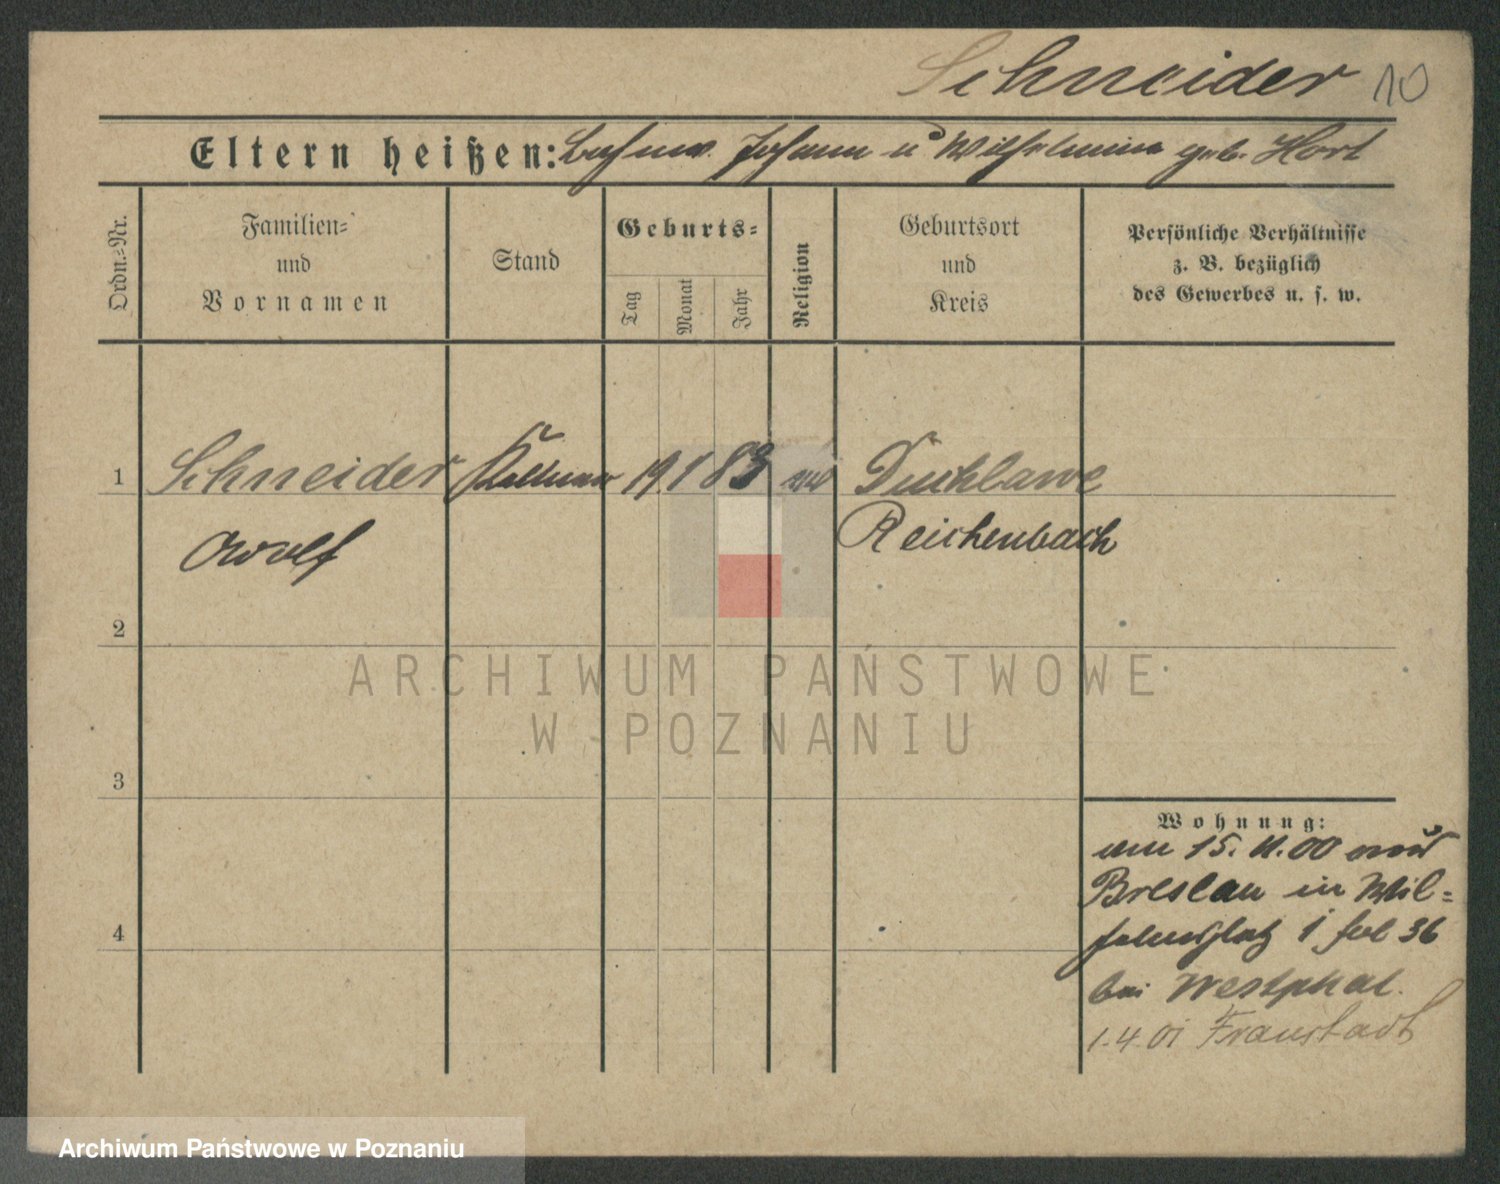 Schneider 10
Eltern heißen: Johann u Wilhelmine geb. Hort
Ordn.=Nr.
Familien=
und
Vornamen
Stand
Geburts=
Tag
Monat
Jahr
Religion
Geburtsort
und
Kreis
Persönliche Verhältnisse
z. B. bezüglich
des Gewerbes u. s. w.
1 Schneider Kellner 19 1 83 Duchlawe
Reichenbach
2
ARCHIWUM PAŃSTWOWE
W POZNANIU
3
4
Wohnung:
am 15. 11. 00
Breslau in Wil=
helmsplatz 1 36
bei Westphal.
1.4.01 Fraustadt
Archiwum Państwowe w Poznaniu